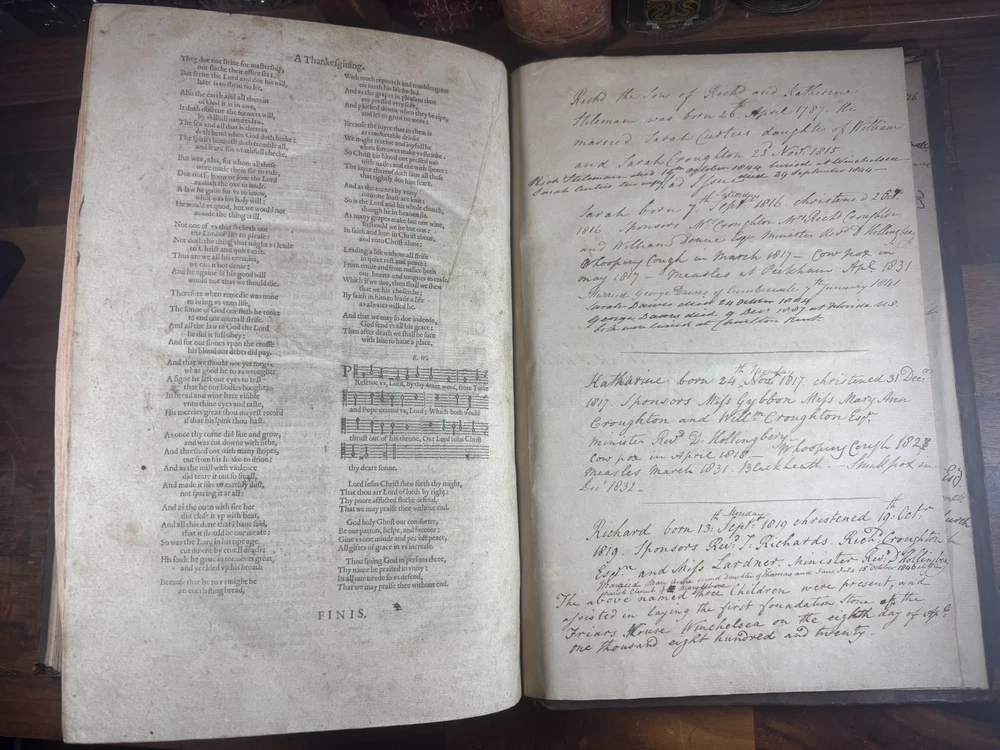 A Thankesgiuing.
They doe not striue for mastership,
nor slacke their office set:
But serue the Lord and doe his will,
hate is to them no let.
Also the earth and all therein
of God it is in awe,
It doth obserue the formers will,
by skilfull natures law,
The sea and all that is therein
doth bend when God doth becke:
The spirits beneath doe tremble all,
and feare his wrathfull checke.
But wee, alas, for whom all these
were made them for to rule,
Doe not so know or loue the Lord
as doth the oxe or mule.
A law he gaue for vs to know,
what was his holy will:
He would vs good, but we would not
auoide the thing is ill.
Not one of vs that seeketh out
the Lord of life to please:
Nor doth the thing that might vs ioyne
to Christ and quiet ease.
Thus are we all his enemies,
we can it not denie:
And he againe of his good will
would not that we should die.
Therefore when remedie was none
to bring vs vnto life,
The sonne of God our flesh he tooke
to end our mortall strife.
And all the law of God the Lord
he did it full obey:
And for our sinnes vpon the crosse
his bloud our debts did pay.
And that we should not yet forget
what good he to vs wrought,
A signe he left our eyes to tell
that he our bodies bought:
In bread and wine here visible
vnto thine eyes and taste,
His mercies great thou mayest record
if that his spirit thou hast.
As once the corne did liue and grow,
and was cut downe with sithe,
And threshed out with many stripes,
out from his huske to driue:
And as the mill with violence
did teare it out so small,
And made it like to earthly dust,
not sparing it at all:
And as the ouen with fire hot
did close it vp with heat,
And all this done that I haue said,
that it should be our meate:
So was the Lord in his ripe age,
cut downe by cruell death:
His soule he gaue in torments great,
and yeelded vp his breath.
Because that he to vs might be
an euerlasting bread,
With much reproach and trouble great
on earth his life he led.
And as the grapes in pleasant time
are pressed very sore,
And plucked downe when they be ripe,
and let to grow no more:
Because the iuyce that in them is
as comfortable drinke
We might receiue and ioyfull be
when sorrowes make vs shrinke.
So Christ his bloud out pressed was
with nailes and eke with speare:
The iuyce thereof doth saue all those
that rightly doe him feare.
And as the cornes by vnity
into one loafe are knit:
So is the Lord and his whole church,
though he in heauen sit.
As many grapes make but one wine,
so should we be but one:
In faith and loue in Christ aboue,
and vnto Christ alone:
Leading a life without all strife
in quiet rest and peace:
From enuie and from malice both
our hearts and tongues to cease.
Which if we doe, then shall we shew
that we his chosen be:
By faith in him to leade a life
as alwaies willed he.
And that we may so doe indeede,
God send vs all his grace:
Then after death we shall be sure
with him to haue a place.
R. W.
PReserue vs, Lord, by thy deare word, from Turke
and Pope defend vs, Lord; Which both would
thrust out of his throne, Our Lord Iesus Christ
thy deare sonne.
Lord Iesus Christ shew forth thy might,
That thou art Lord of lords by right:
Thy poore afflicted flocke defend,
That we may praise thee without end.
God holy Ghost our comforter,
Be our patron, helpe, and succour:
Giue vs one minde and perfect peace,
All gifts of grace in vs increase.
Thou liuing God in persons three,
Thy name be praised in vnity:
In all our neede so vs defend,
That we may praise thee without end.
FINIS.
Richd the Son of Richd and Katherine
Stileman was born 26th April 1787. He
married Sarah Curteis daughter of William
and Sarah Croughton 23d Novr 1815
Richd Stileman died 19th October 1844 buried at Winchelsea
died 29 September 1844
Sunday
Sarah born 7th Septr 1816 christened
1816 Sponsors Mrs Croughton Mrs Richd Croughton
and William Denne Esqr Minister Revd D. Hollingbery
Whooping Cough in March 1817 - Cow pox in
may 1817 - Measles at Peckham Apl 1831
Married George Dawes of Camberwell 7th January 1841
Sarah Dawes died 24 October 1884
George Dawes died 9 Decr 1887 at Florida U.S.
both are buried at Charlton Kent
Monday
Katharine born 24th Novr 1817 christened 31 Decr
1817. Sponsors Miss Gybbon Miss Mary Ann
Croughton and Willm Croughton Esqr
minister Revd D. Hollingbery
Cow pox in April 1818 - Whooping Cough 1828
Measles March 1831. Blackheath. Small pox in
Decr 1832 -
Monday
Richard born 13th Septr 1819 christened 19th Octr
1819. Sponsors Revd J. Richards. Richd Croughton
Esqr and Miss Lardner. Minister Revd D Hollingbery
Married Mary Anne second daughter of Thomas and
Parish Church of Marylebone
The above named three Children were present, and
assisted in laying the first foundation Stone of the
Friars House Winchelsea on the eighth day of Apl
one thousand eight hundred and twenty.